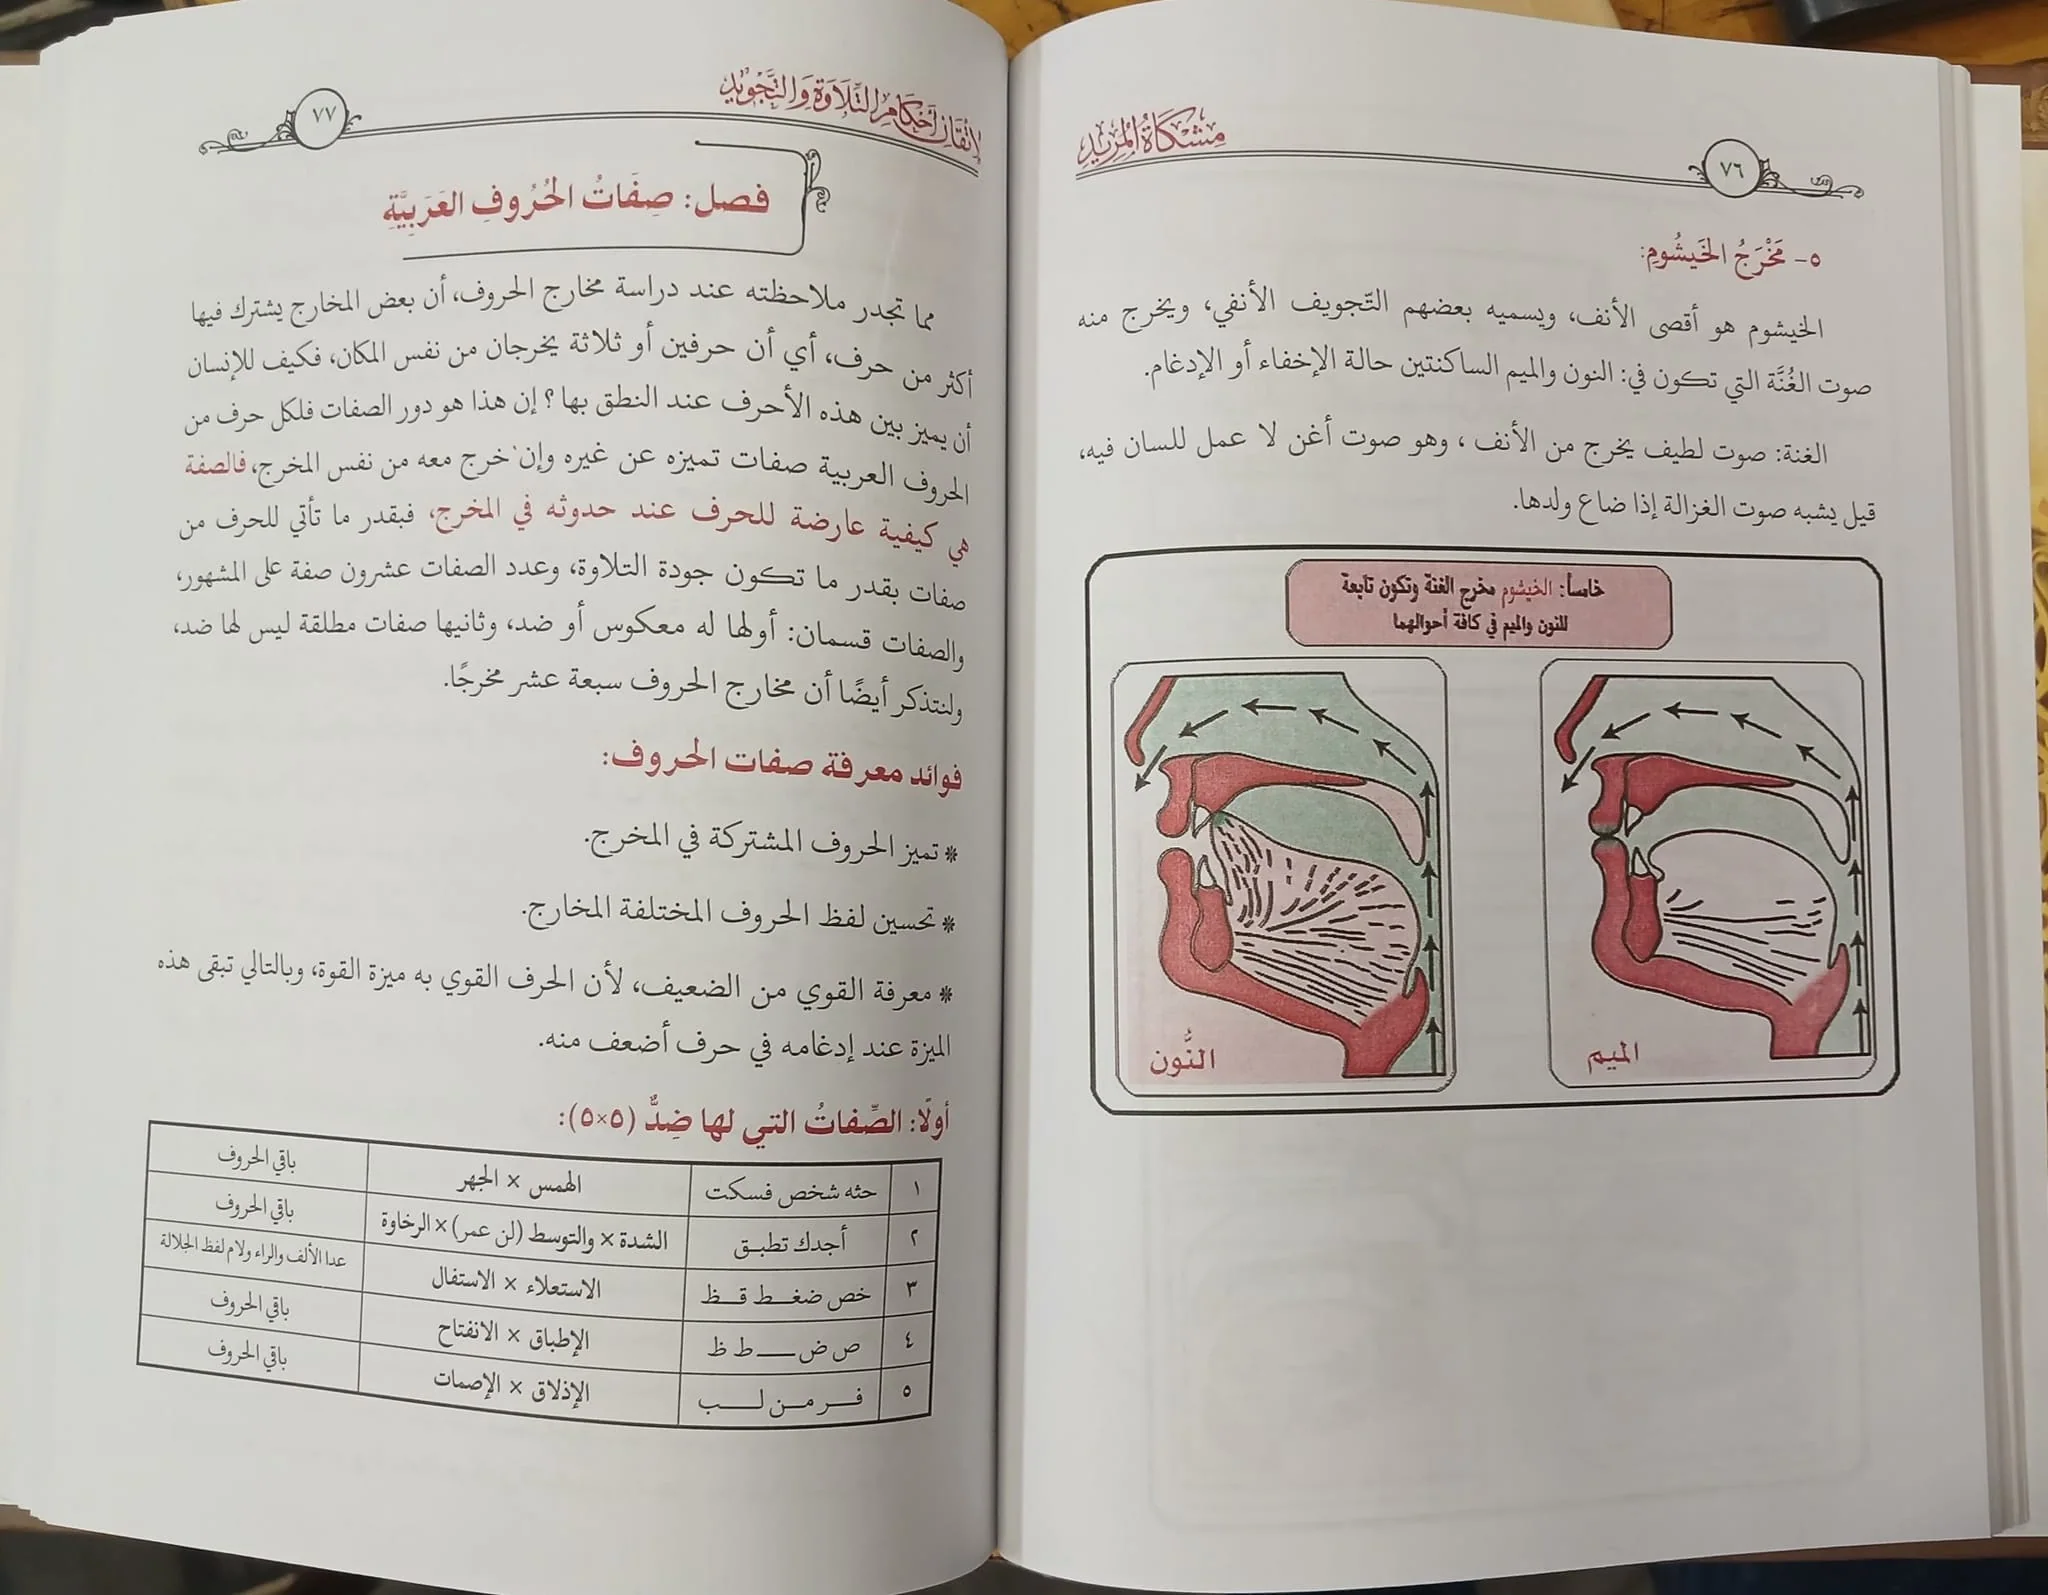 مِشْكَاةُ المُرِيدِ
٧٦
٥- مَخْرَجُ الخَيشُومِ:
الخيشوم هو أقصى الأنف، ويسميه بعضهم التّجويف الأنفي، ويخرج منه
صوت الغُنَّة التي تكون في: النون والميم الساكنتين حالة الإخفاء أو الإدغام.
الغنة: صوت لطيف يخرج من الأنف، وهو صوت أغن لا عمل للسان فيه،
قيل يشبه صوت الغزالة إذا ضاع ولدها.
خامساً: الخيشوم مخرج الغنة وتكون تابعة
للنون والميم في كافة أحوالهما
الميم
النُّون
لإِتْقَانِ أَحْكَامِ التِّلَاوَةِ وَالتَّجْوِيدِ
٧٧
فصل: صِفَاتُ الحُرُوفِ العَرَبِيَّةِ
مما تجدر ملاحظته عند دراسة مخارج الحروف، أن بعض المخارج يشترك فيها
أكثر من حرف، أي أن حرفين أو ثلاثة يخرجان من نفس المكان، فكيف للإنسان
أن يميز بين هذه الأحرف عند النطق بها؟ إن هذا هو دور الصفات فلكل حرف من
الحروف العربية صفات تميزه عن غيره وإن خرج معه من نفس المخرج، فالصفة
هي كيفية عارضة للحرف عند حدوثه في المخرج، فبقدر ما تأتي للحرف من
صفات بقدر ما تكون جودة التلاوة، وعدد الصفات عشرون صفة على المشهور،
والصفات قسمان: أولها له معكوس أو ضد، وثانيها صفات مطلقة ليس لها ضد،
ولنتذكر أيضًا أن مخارج الحروف سبعة عشر مخرجًا.
فوائد معرفة صفات الحروف:
* تميز الحروف المشتركة في المخرج.
* تحسين لفظ الحروف المختلفة المخارج.
* معرفة القوي من الضعيف، لأن الحرف القوي به ميزة القوة، وبالتالي تبقى هذه
الميزة عند إدغامه في حرف أضعف منه.
أولًا: الصِّفاتُ التي لها ضِدٌّ (٥×٥):
١ حثه شخص فسكت الهمس × الجهر باقي الحروف
٢ أجدك تطبـق الشدة × والتوسط (لن عمر) × الرخاوة باقي الحروف
٣ خص ضغـط قـظ الاستعلاء × الاستفال عدا الألف والراء ولام لفظ الجلالة
٤ ص ض ــــ ط ظ الإطباق × الانفتاح باقي الحروف
٥ فـر مـن لـب الإذلاق × الإصمات باقي الحروف